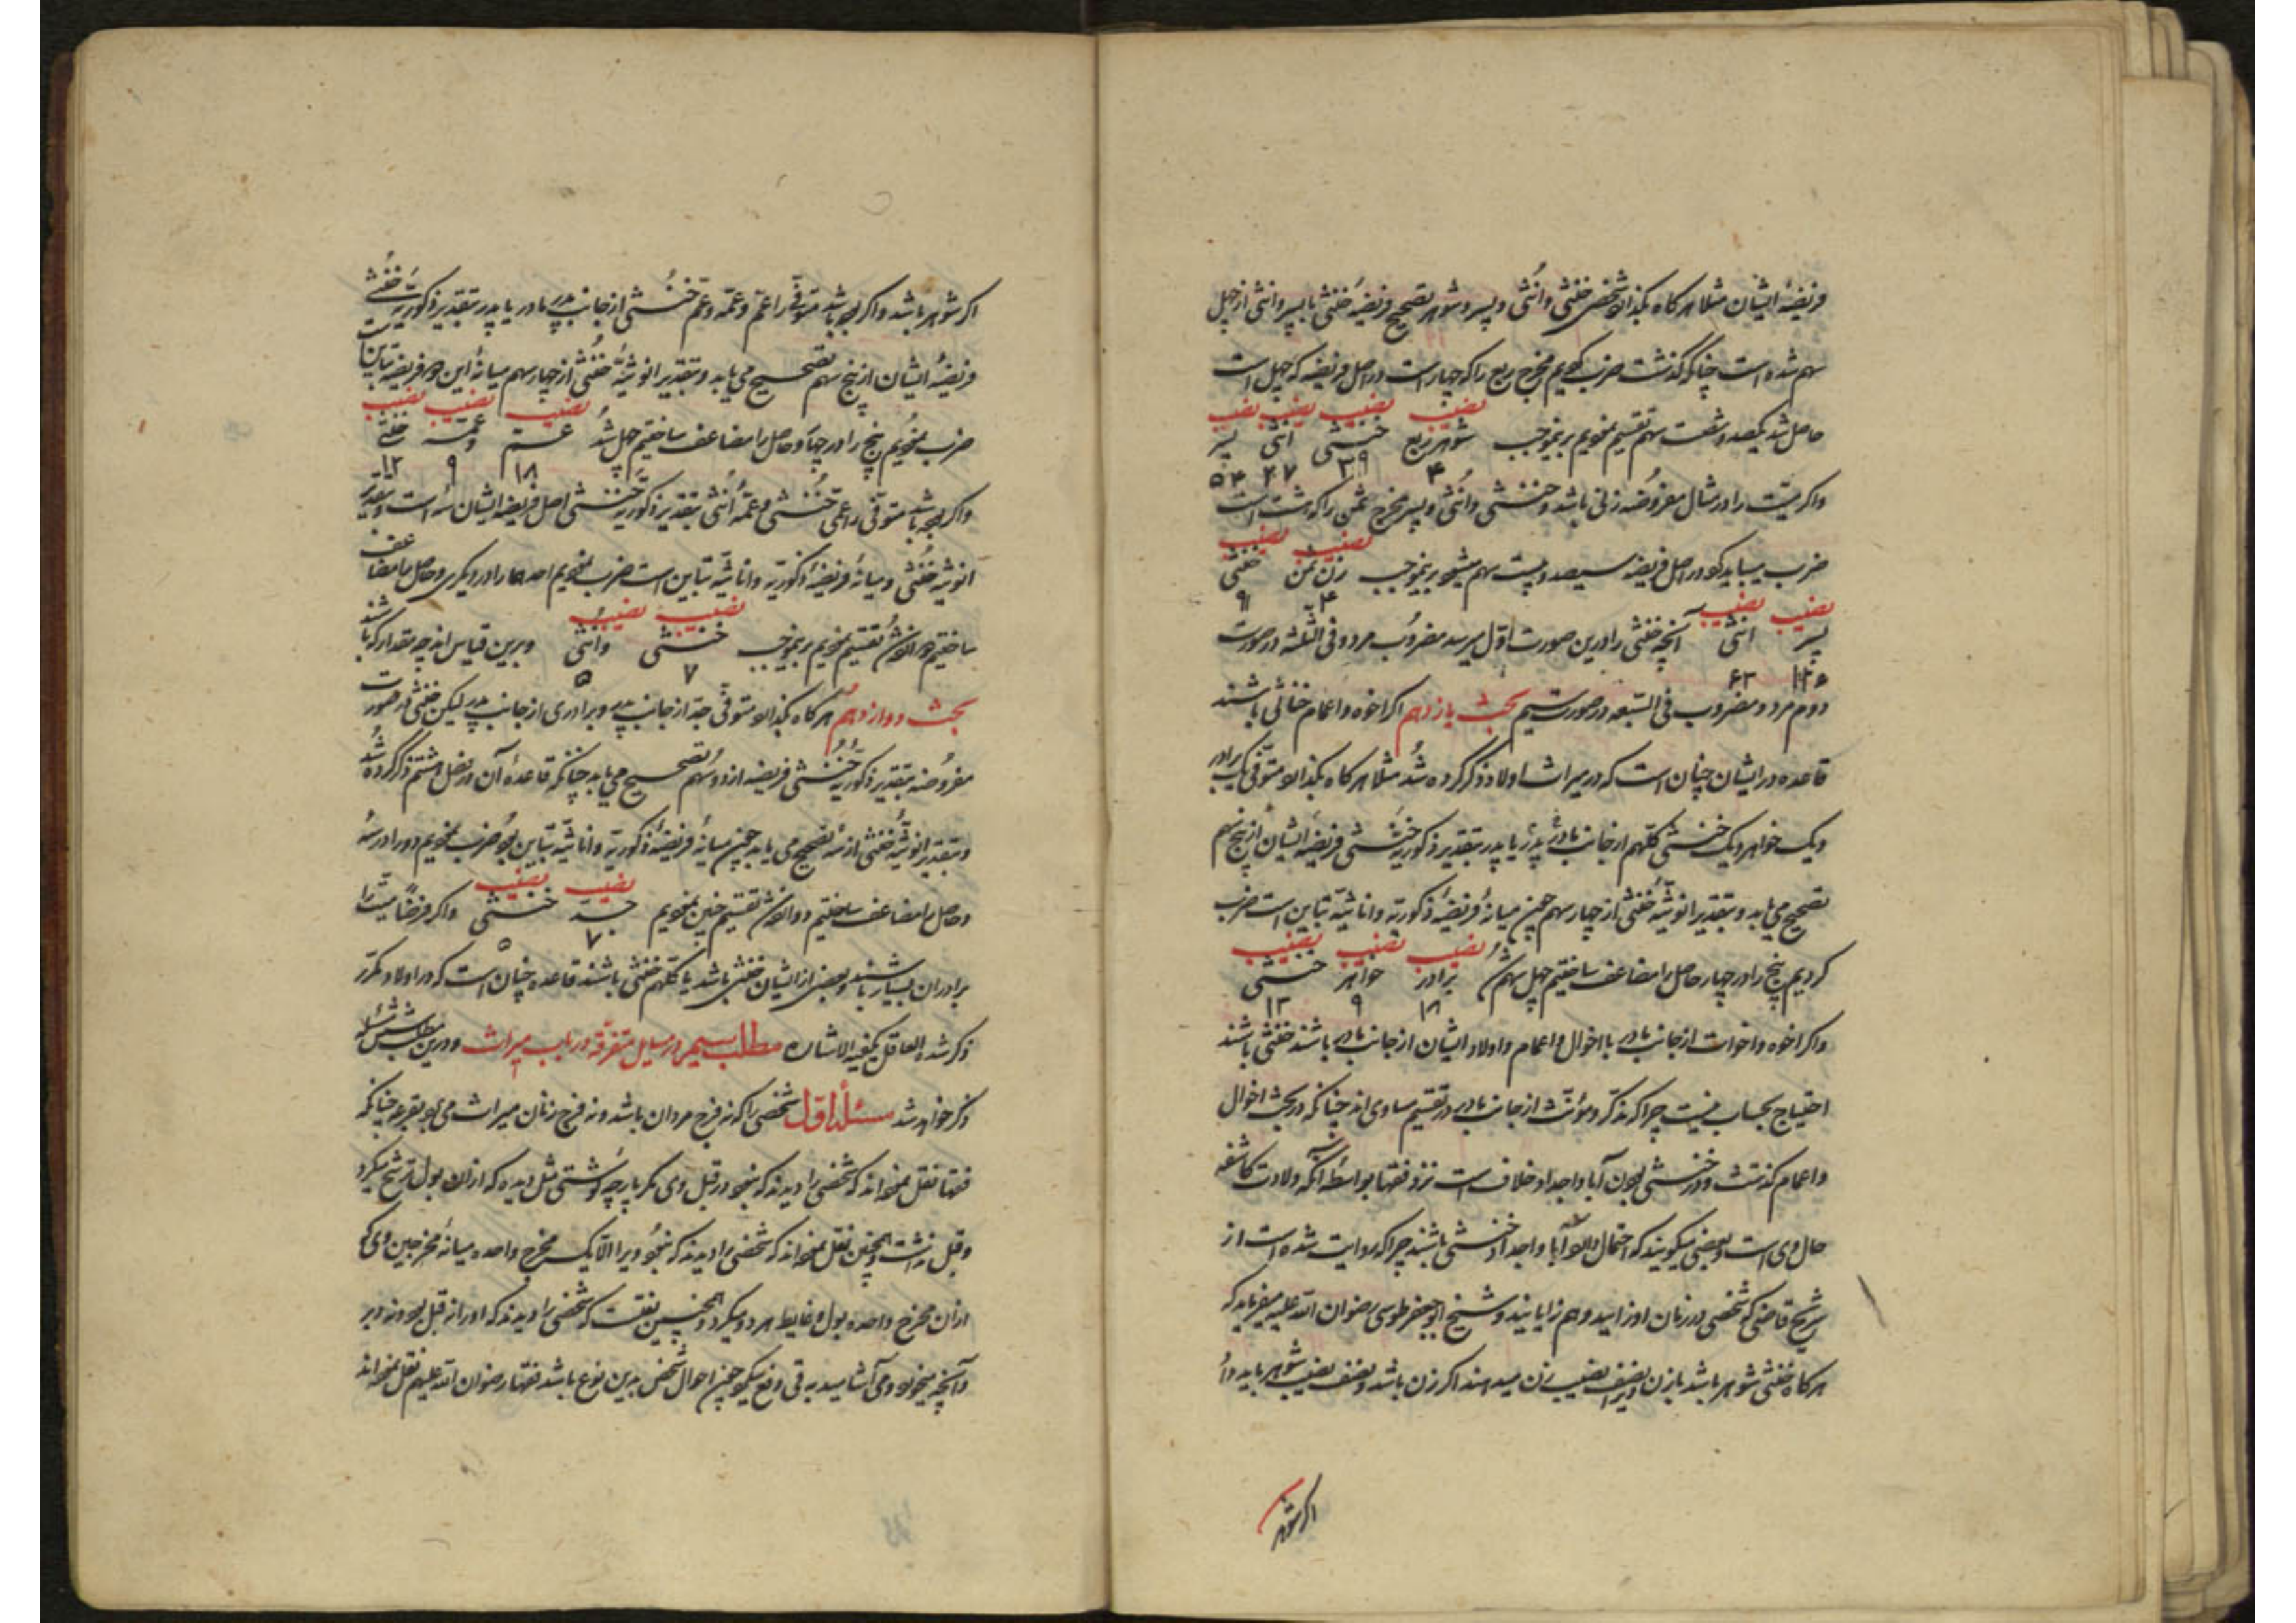 فریضهٔ ایشان مثلا هرکاه بکذارد شخصی خنثی وانثی وپسر وشوهر تصحیح فریضهٔ خنثی با پسر وانثی از چهل
سهم شده است چنانکه کذشت ضرب کردیم مخرج ربع را که چهار است در اصل فریضه که چهل است
نصیب نصیب نصیب نصیب
حاصل شد یکصد وشصت سهم تقسیم نمودیم برینموجب شوهر ربع خنثی انثی پسر
۴ ۳۹ ۲۷ ۵۴
واکر میّت را در مثال مفروضه زنی باشد وخنثی وانثی وپسر مخرج ثمن را که هشت است
نصیب نصیب
ضرب میباید کرد در اصل فریضه سیصد وبیست سهم میشود برینموجب زن ثمن خنثی
۴ ۹۱
نصیب نصیب
پسر انثی آنچه خنثی را درین صورت اول میرسد مضروب مردود فی الثلثه در صورت
۱۲۶ ۶۳
دوم مردود مضروب فی السّبعه در صورت سیم بحث یازدهم اکر اخوه واعمام خناثی باشند
قاعده در ایشان چنان است که در میراث اولاد ذکر کرده شد مثلا هرکاه بکذارد متوفی یک برادر
ویک خواهر ویک خنثی کلّهم از جانب مادر پدر یا پدر بتقدیر ذکوریهٔ خنثی فریضهٔ ایشان از پنج سهم
تصحیح می یابد وبتقدیر انوثیّهٔ خنثی از چهار سهم چون میانهٔ فریضهٔ ذکوریّه واناثیّه تباین است ضرب
نصیب نصیب نصیب
کردیم پنج را در چهار حاصل را مضاعف ساختیم چهل سهم شد برادر خواهر خنثی
۱۸ ۹ ۱۳
واکر اخوه واخوات از جانب مادر یا اخوال واعمام واولاد ایشان از جانب مادر باشند خنثی باشند
احتیاج بحساب نیست چرا که مذکر ومؤنّث از جانب مادر در تقسیم مساوی اند چنانکه در بحث اخوال
واعمام کذشت ودر خنثی بودن آبا واجداد خلاف است نزد فقها بواسطهٔ آنکه ولادت کاشفه
حال وی است وبعضی میکویند که احتمال دارد آبا واجداد خنثی باشند چرا که روایت شده است از
شریح قاضی که شخصی در زمان او زایید وهم زایانید وشیخ ابو جعفر طوسی رضوان الله علیه میفرماید که
هرکاه خنثی شوهر باشد یا زن ویرا نصف نصیب زن میدهند اکر زن باشد ونصف نصیب شوهر باید داد
اکر شوهر
اکر شوهر باشد واکر بوده باشد متوفی را عمّ وعمّه وعمّ خنثی از جانب پدر مادر یا پدر بتقدیر ذکوریّت خنثی
فریضهٔ ایشان از پنج سهم تصحیح می یابد وبتقدیر انوثیّهٔ خنثی از چهار سهم میانهٔ این دو فریضه تباین است
نصیب نصیب نصیب
ضرب نمودیم پنج را در چهار وحاصل را مضاعف ساختیم چهل شد عمّ وعمّه خنثی
۱۸ ۹ ۱۳
واکر بوده باشد متوفّی را عمّی خنثی وعمّهٔ انثی بتقدیر ذکوریّهٔ خنثی اصل فریضه ایشان سه است وبتقدیر
انوثیه خنثی ومیانهٔ فریضهٔ ذکوریّه واناثیّه تباین است ضرب نمودیم احدهما را در دیکری وحاصل را مضاعف
نصیب نصیب
ساختیم دوازده شد تقسیم نمودیم برینموجب خنثی وانثی وبرین قیاس اند چه مقدار که باشند
۷ ۵
بحث دوازدهم هرکاه بکذارد متوفی جدّ از جانب پدر وبرادری از جانب پدر لیکن خنثی در صورت
مفروضه بتقدیر ذکوریّهٔ خنثی فریضه از دو سهم تصحیح می یابد چنانکه قاعدهٔ آن در فصل هشتم ذکر کرده شد
وبتقدیر انوثیّهٔ خنثی از سه تصحیح می یابد چون میانهٔ فریضهٔ ذکوریّه واناثیّه تباین بود ضرب نمودیم دو را در سه
نصیب نصیب
وحاصل را مضاعف ساختیم دوازده شد تقسیم چنین نمودیم جدّ خنثی واکر فرضاً میّت را
۷ ۵
برادران بسیار باشند وبعضی از ایشان خنثی باشد یا کلّهم خنثی باشند قاعده چنان است که در اولاد مکرّر
ذکر شد العاقل یکفیه الاشاره مطلب سیم در مسایل متفرّقه در باب میراث ودرین مطلب شش مسئله
ذکر خواهد شد مسئلهٔ اول شخصی را که نه فرج مردان باشد ونه فرج زنان میراث می برد بقرعه چنانکه
فقها نقل نموده اند که شخصی را دیدند که نبود در قبل وی مکر پارچه کوشتی مثل دیده که ازان بول ترشح میکرد
وقبل نداشت وهمچنین نقل نموده اند که شخصی را دیدند که نبود ویرا الّا یک مخرج واحده میانهٔ مخرجین وی که
ازان مخرج واحده بول وغایط هر دو میکرد وهمچنین نقلست که شخصی را دیدند که او را نه قبل بود ونه دبر
وآنچه میخورد ومی آشامید به قی دفع میکرد چون احوال شخص بدین نوع باشد فقهاء رضوان الله علیهم نقل نموده اند